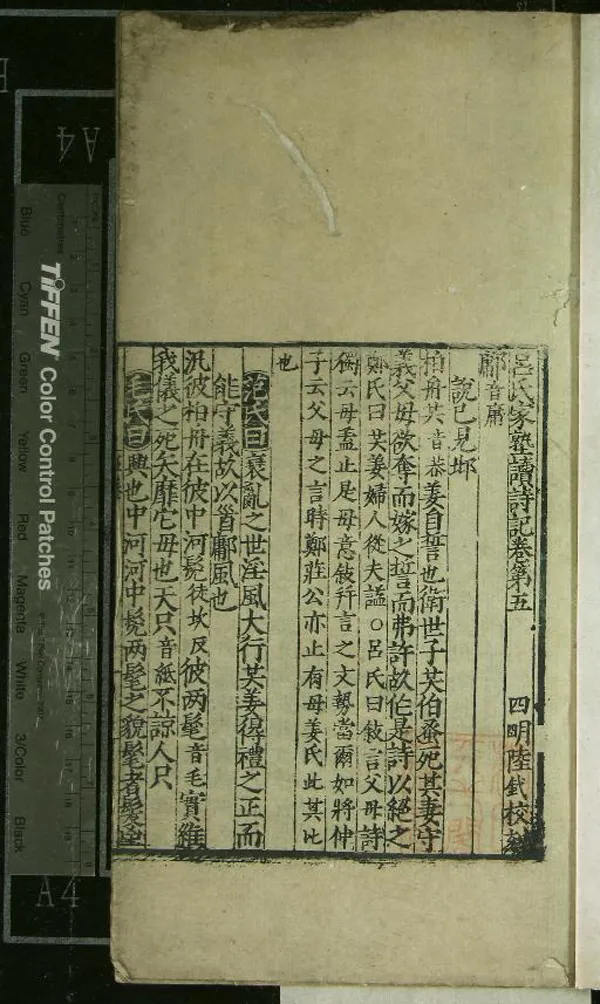 呂氏家塾讀詩記卷第五 四明陸釴校
鄘音庸
說已見邶
柏舟共音恭姜自誓也衛世子共伯蚤死其妻守
義父母欲奪而嫁之誓而弗許故作是詩以絕之
鄭氏曰共姜婦人從夫謚○呂氏曰敘言父母詩
獨云母盖止是母意敘幷言之文勢當爾如將仲
子云父母之言時鄭莊公亦止有母姜氏此其比
也
范氏曰衰亂之世淫風大行共姜得禮之正而
能守義故以首鄘風也
汎彼柏舟在彼中河髧徒坎反彼两髦音毛實維
我儀之死矢靡它母也天只音紙不諒人只
毛氏曰興也中河河中髧两髦之貌髦者髮至
A4
TIFFEN Color Control Patches
Blue Cyan Green Yellow Red Magenta White 3/Color Black
Centimetres
A4